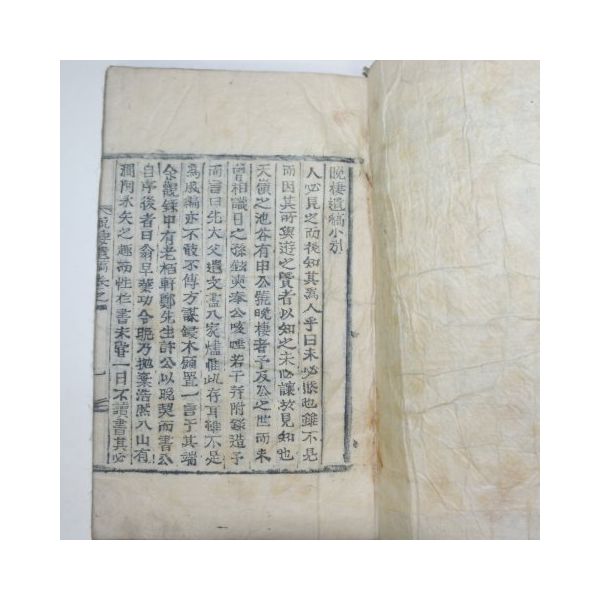 晚棲遺稿小引
人必見之而後知其爲人乎曰未必然也雖不是
而因其所與遊之賢者以知之未必讓於見知也
天嶺之池谷有申公號晚棲者予及公之世而未
曾相識日之孫鉉奭奉公唫唾若干并附錄造予
而言曰先大父遺文盡入家燼惟此存耳雖不是
爲成編亦不敢不傳方謀鋟木願置一言于其端
余觀錄中有老栢軒鄭先生許公以晚契而書公
自序後者曰翁早業功令晚乃抛棄浩然入山有
澗阿永矢之趣而性在書未嘗一日不讀書其必
晚棲遺稿卷之